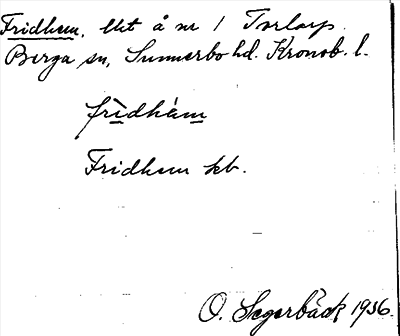 Fridhem, lht å nr 1 Torlarp.
Berga sn, Sunnerbo hd. Kronob. l.
frìdhàm
Fridhem kb.
O. Segerbäck 1936.